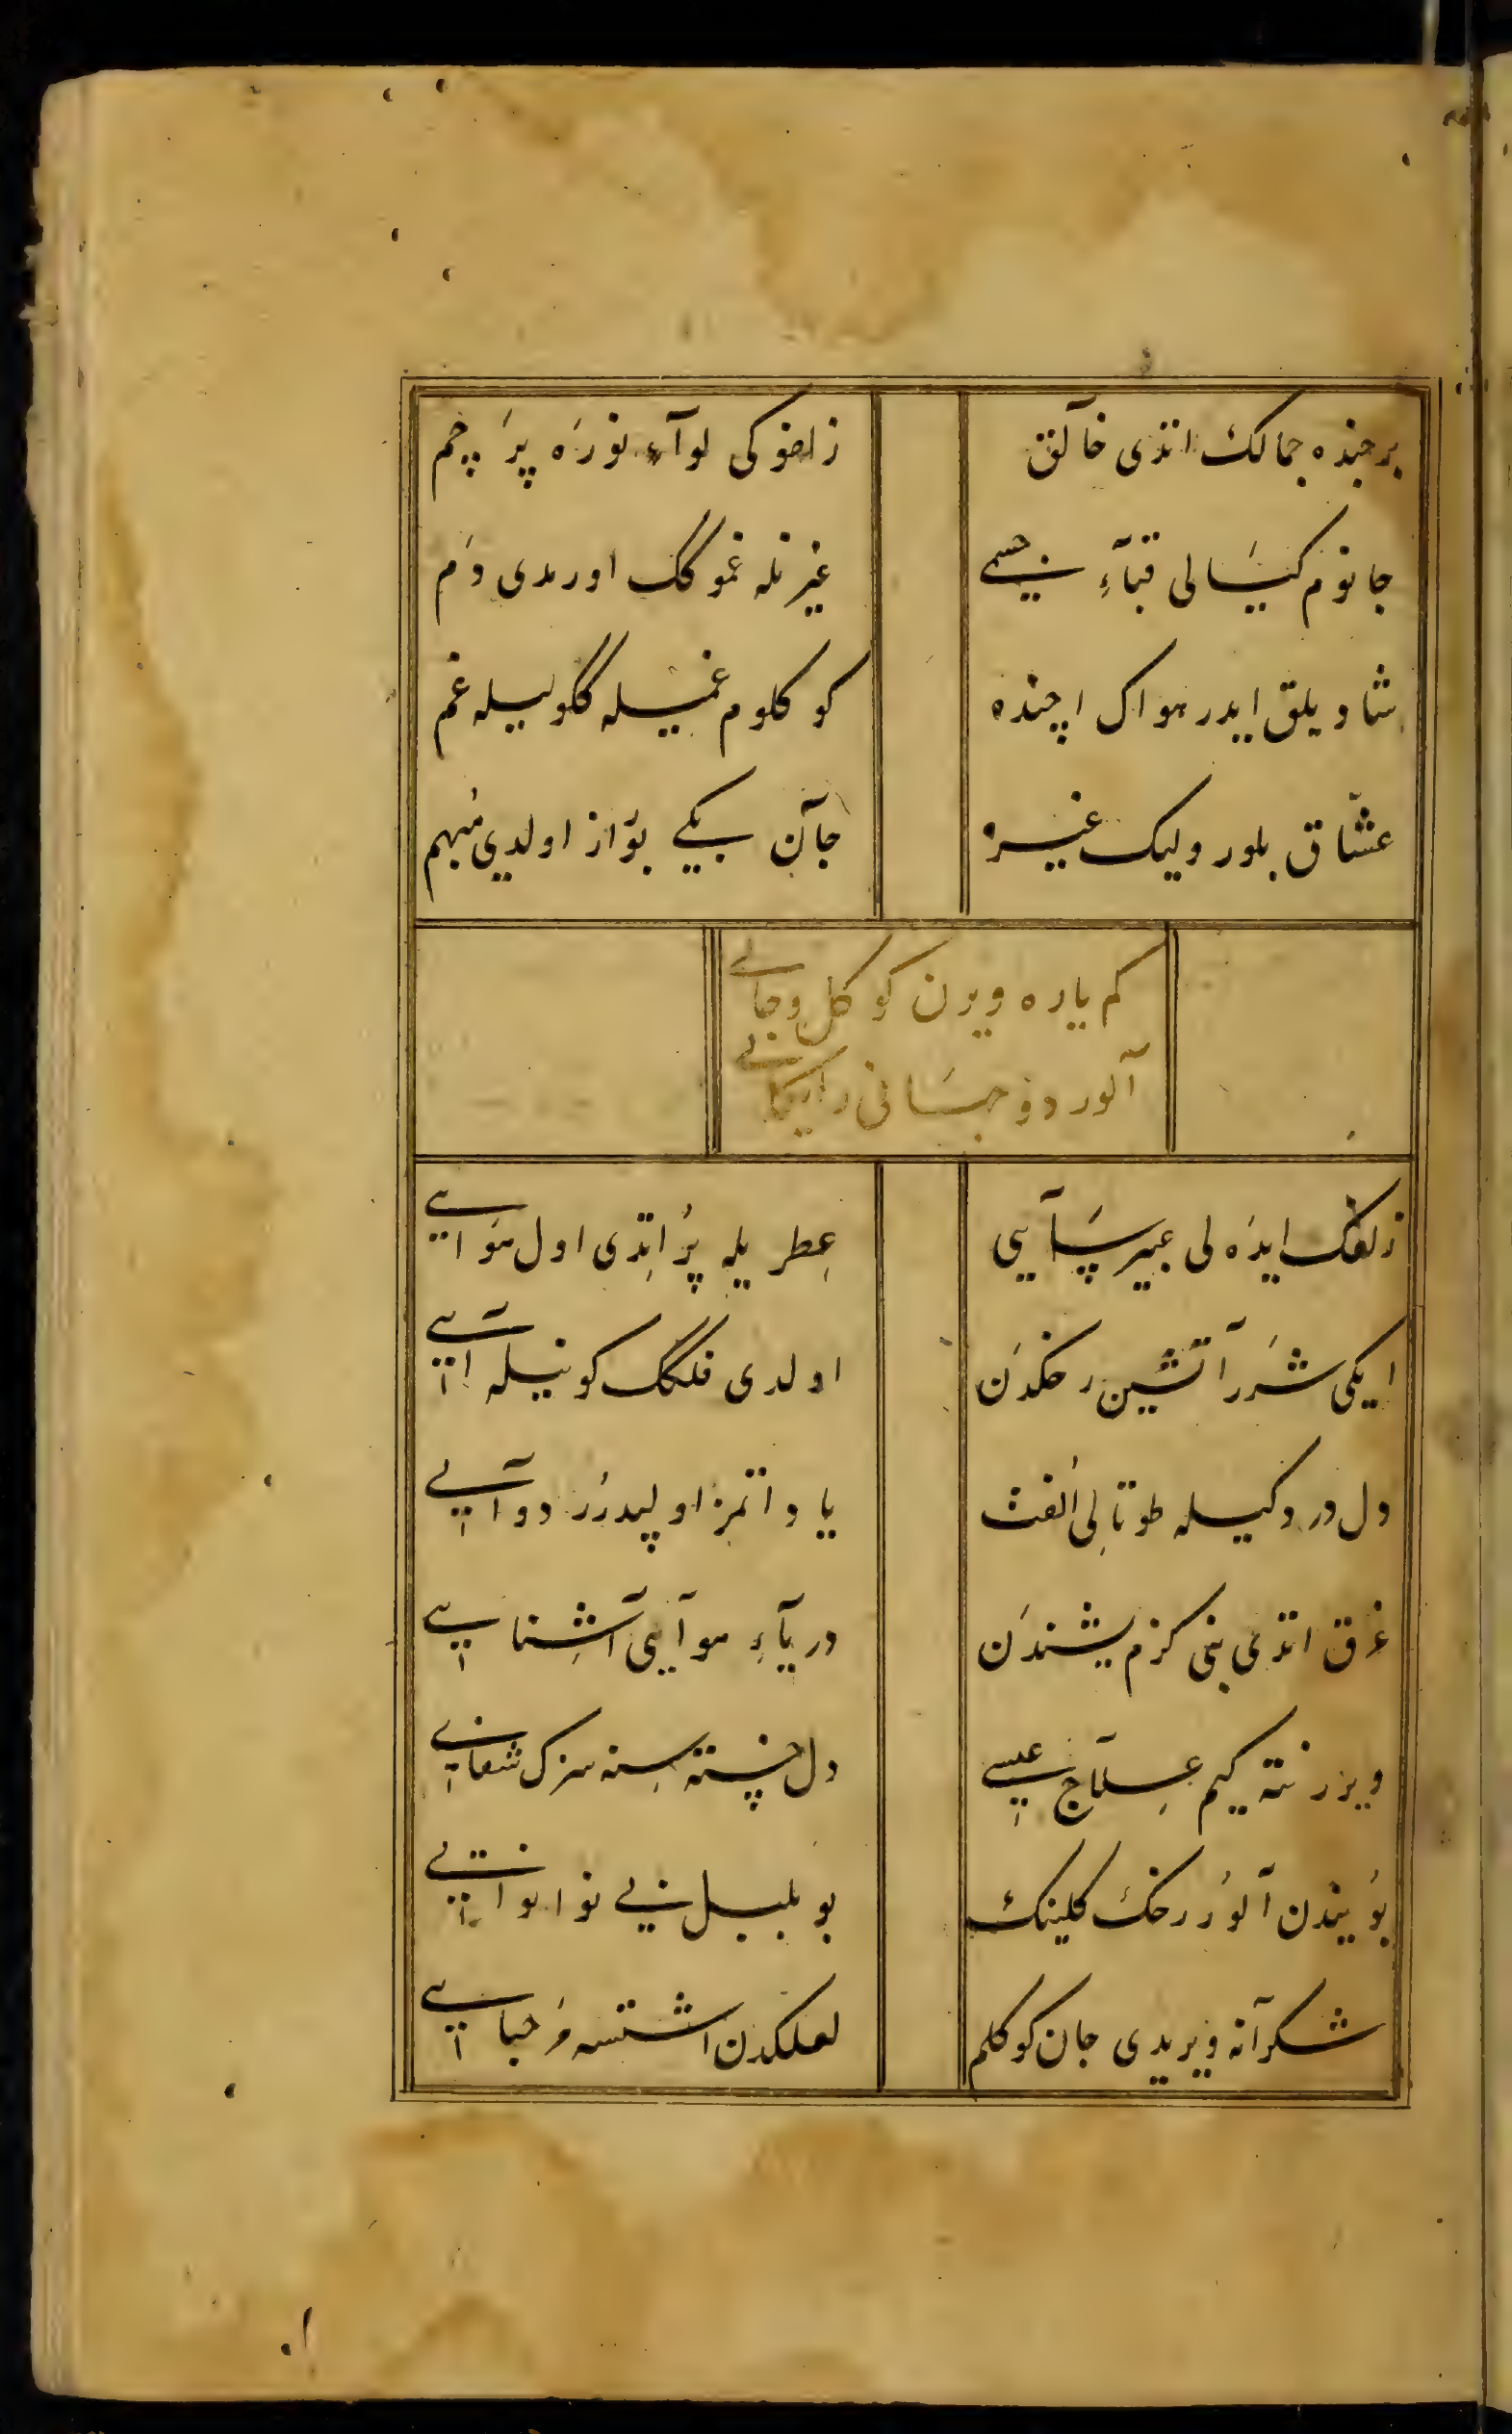 بر جنده جمالك اتدی خالق
زلفوکی لوآء نورَه پرَ چم
جانوم کیسَالی قبآءِ حسنی
غیرتله غموکك اوردی دَم
شادیلق ایدر هواک اچنده
کوکلوم غمیله کوکلیله غم
عشّاق بلور ولیک غیره
جان بیکی بو راز اولدی مُبهم
کم یاره ویرن کوکل و جانی
آلور دو جهَانی رایکانی
زلفک ایدَه لی عبیر سَآیی
عِطر یله پُر اِتدی اول هَوایی
ایکی شرَر آتشین رخکدَن
اولدی فلکك کونیله آیی
دل دردکیله طوتالِی اُلفت
یاد اتمز اولیدرُر دوآیی
غرق اتدی بنی کزم یشندَن
دریآءِ هوآیی آشِنایی
ویررنته کیم عِلآج عیسی
دل خسته سنه سزک شفایی
بوُیندن آلوُر رخك کلینك
بو بلبل نی نوا نوایی
شکرآنه ویریدی جان کوکلم
لعلکدن اشتسه مرَحبایی